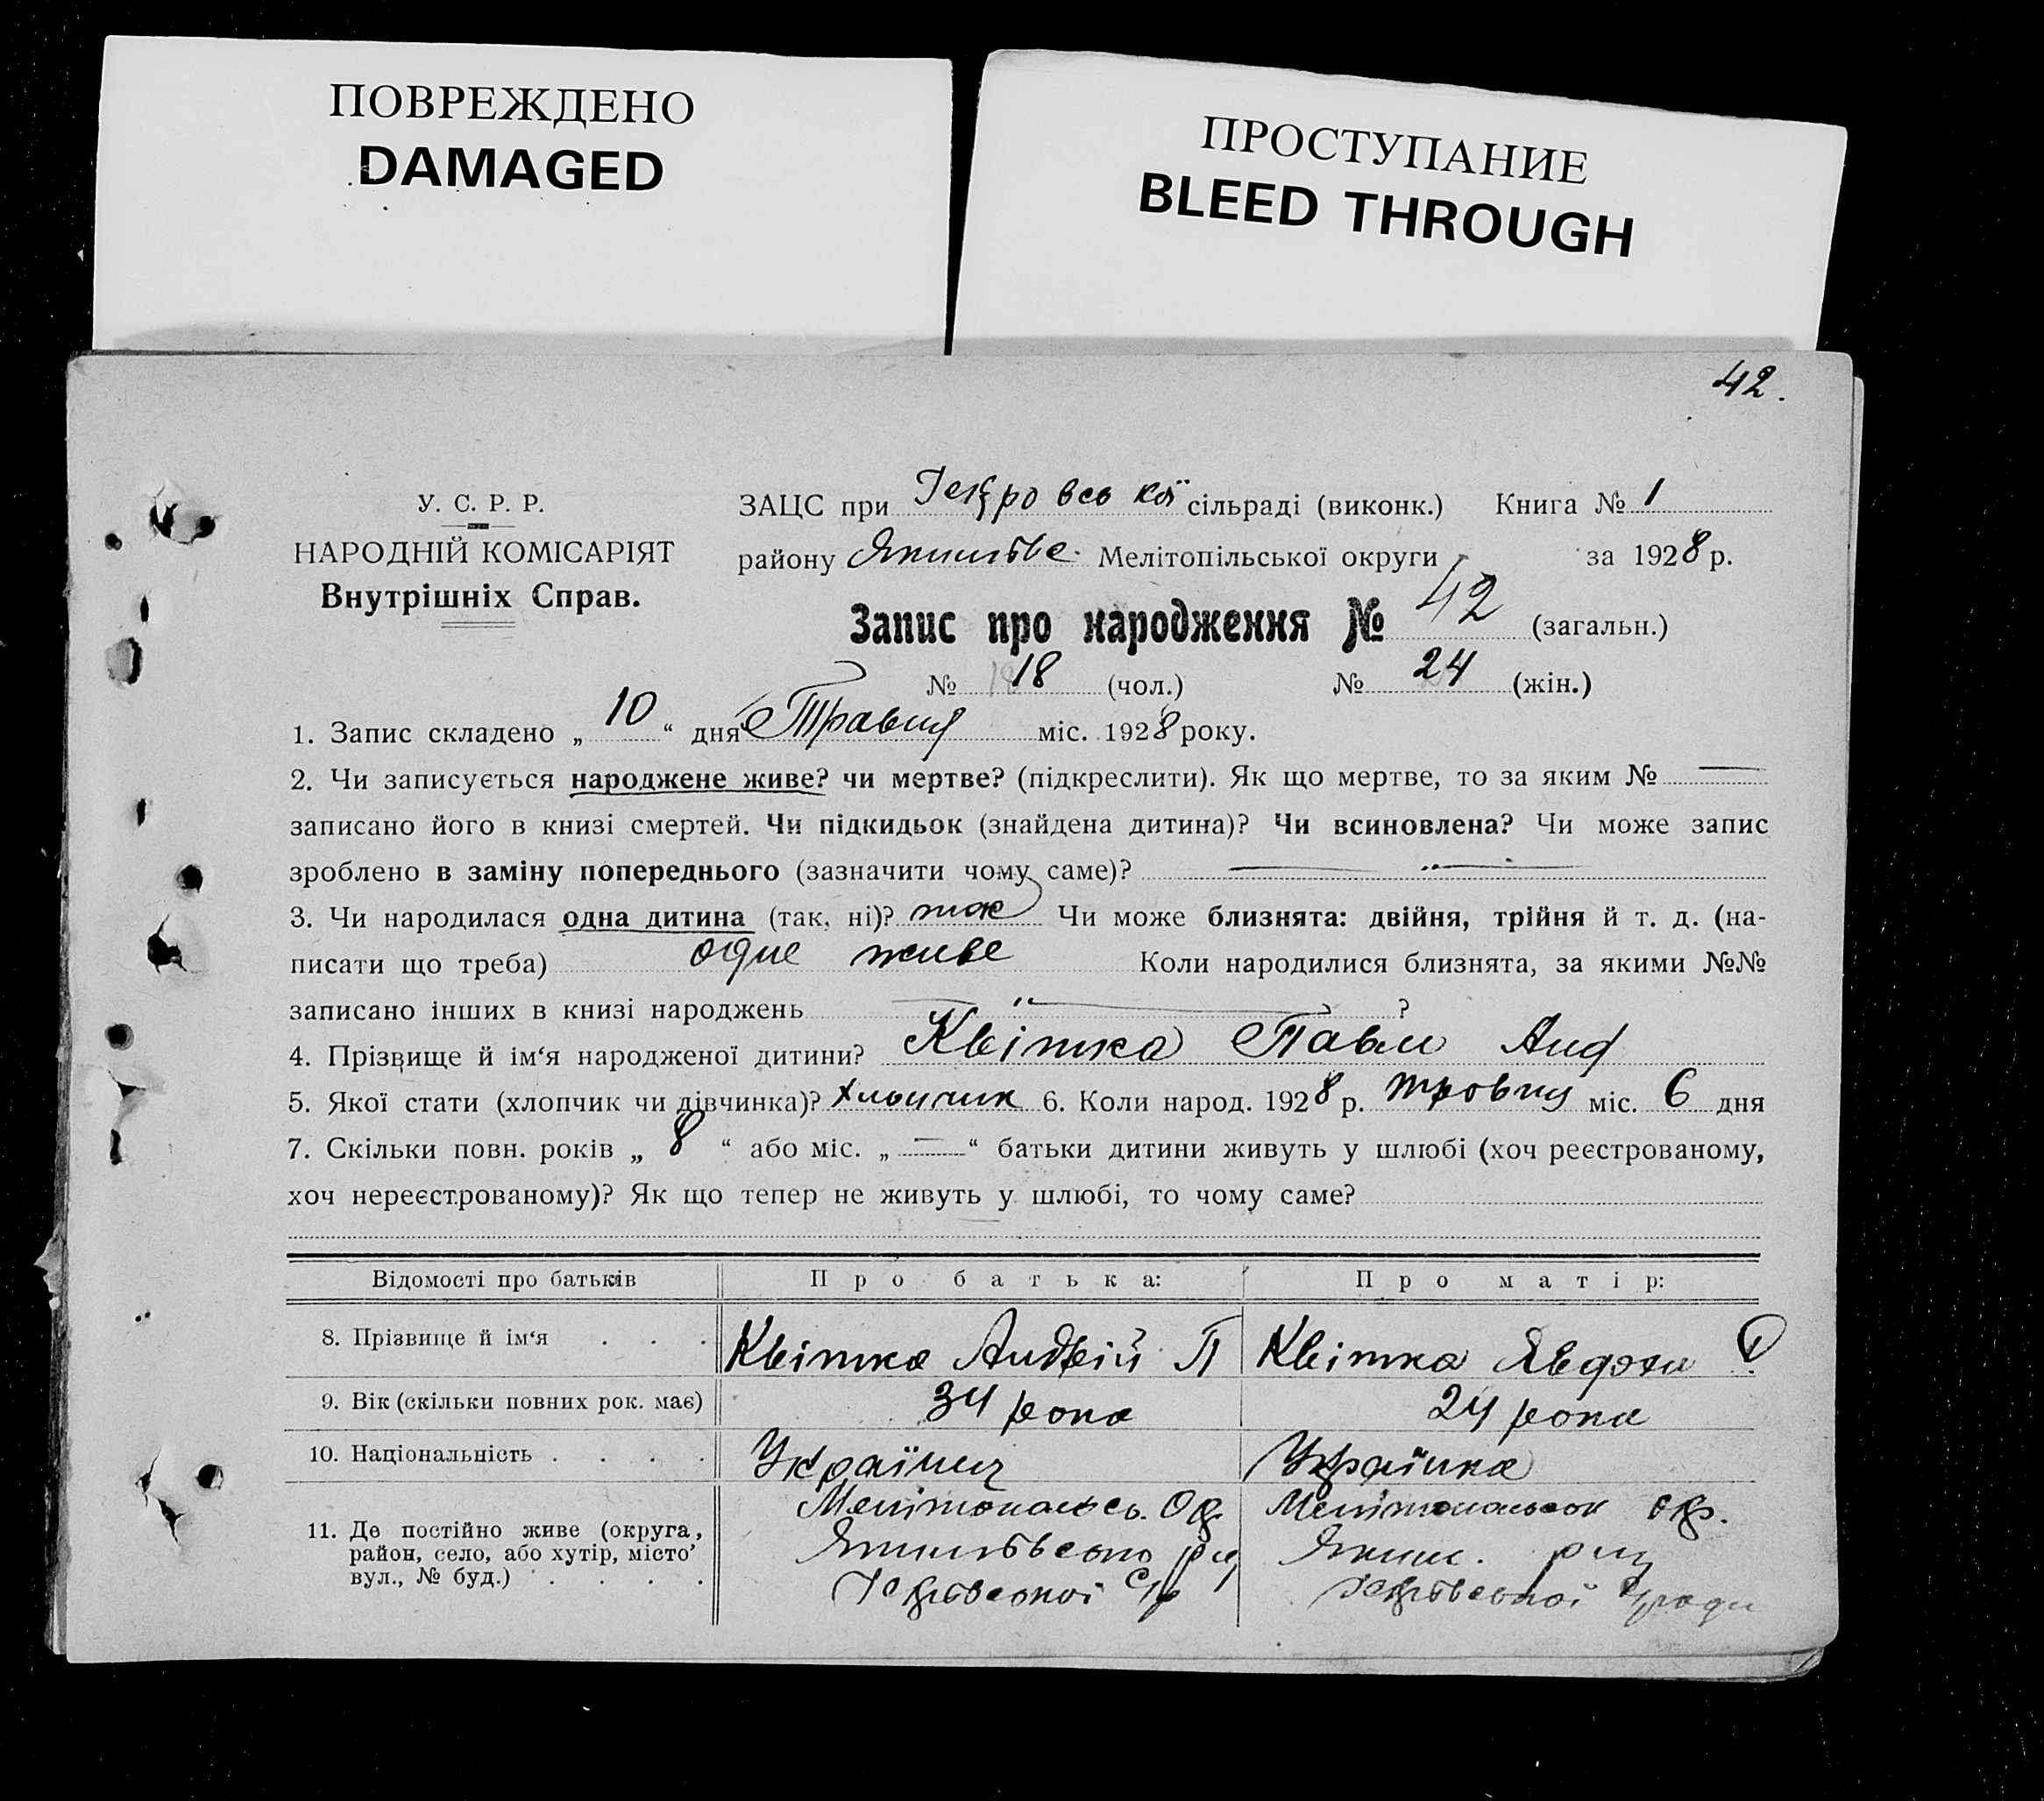 ПОВРЕЖДЕНО
DAMAGED
ПРОСТУПАНИЕ
BLEED THROUGH
42.
У. С. Р. Р.
НАРОДНІЙ КОМІСАРІЯТ
Внутрішніх Справ.
ЗАЦС при сільраді (виконк.) Книга № 1
району Мелітопільської округи за 1928 р.
Запис про народження № 42 (загальн.)
№ 18 (чол.) № 24 (жін.)
1. Запис складено „ 10 “ дня Травня міс. 1928 року.
2. Чи записується народжене живе? чи мертве? (підкреслити). Як що мертве, то за яким № —
записано його в книзі смертей. Чи підкидьок (знайдена дитина)? Чи всиновлена? Чи може запис
зроблено в заміну попереднього (зазначити чому саме)? — „ —
3. Чи народилася одна дитина (так, ні)? так Чи може близнята: двійня, трійня й т. д. (на-
писати що треба) одне живе Коли народилися близнята, за якими №№
записано інших в книзі народжень — „ — ?
4. Прізвище й ім‘я народженої дитини? Квітка Павло Анд
5. Якої стати (хлопчик чи дівчинка)? хлопчик 6. Коли народ. 1928 р. травня міс. 6 дня
7. Скільки повн. років „ 8 “ або міс. „ — “ батьки дитини живуть у шлюбі (хоч реєстрованому,
хоч нереєстрованому)? Як що тепер не живуть у шлюбі, то чому саме?
Відомості про батьків Про батька: Про матір:
8. Прізвище й ім‘я . . . Квітка Андрій П Квітка Явдоха
9. Вік (скільки повних рок. має) 34 рока 24 рока
10. Національність . . . . Українец Українка
Мелітопольсь. Ок. Мелітопольськ окр.
11. Де постійно живе (округа,
район, село, або хутір, місто’
вул., № буд.) . . . .